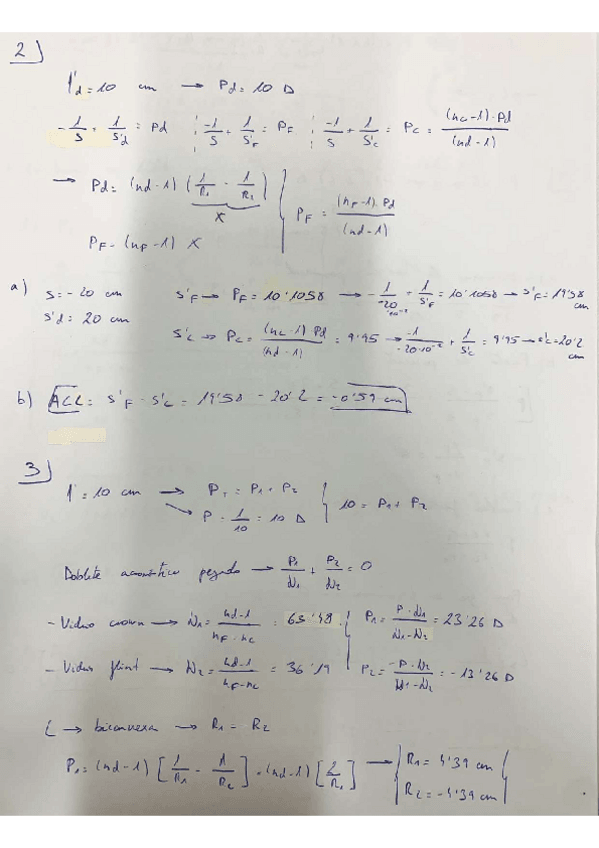 2)
f'd = 10 cm → Pd = 10 D
-1/s + 1/s'd = Pd ¦ -1/s + 1/s'F = PF ¦ -1/s + 1/s'c = Pc = (nc-1)·Pd/(nd-1)
→ Pd = (nd-1) (1/R1 - 1/R2) { PF = (nF-1) Pd/(nd-1)
x
PF = (nF-1) x
a) s = -20 cm s'F → PF = 10'1058 → -1/-20·10⁻² + 1/s'F = 10'1058 → s'F = 19'58 cm
s'd = 20 cm
s'c → Pc = (nc-1) Pd/(nd-1) = 9'95 → -1/-20·10⁻² + 1/s'c = 9'95 → s'c = 20'2 cm
b) ACL = s'F - s'c = 19'58 - 20'2 = -0'59 cm
3)
f' = 10 cm → PT = P1 + P2 { 10 = P1 + P2
P = 1/10 = 10 D
Doblete acromático pegado → P1/V1 + P2/V2 = 0
- Vidrio crown → V1 = nd-1/nF-nc = 63'48 { P1 = P·V1/V1-V2 = 23'26 D
- Vidrio flint → V2 = nd-1/nF-nc = 36'19 P2 = -P·V2/V1-V2 = -13'26 D
L → biconvexa → R1 = R2
P1 = (nd-1) [1/R1 - 1/R2] = (nd-1) [2/R1] → { R1 = 4'39 cm
R2 = -4'39 cm